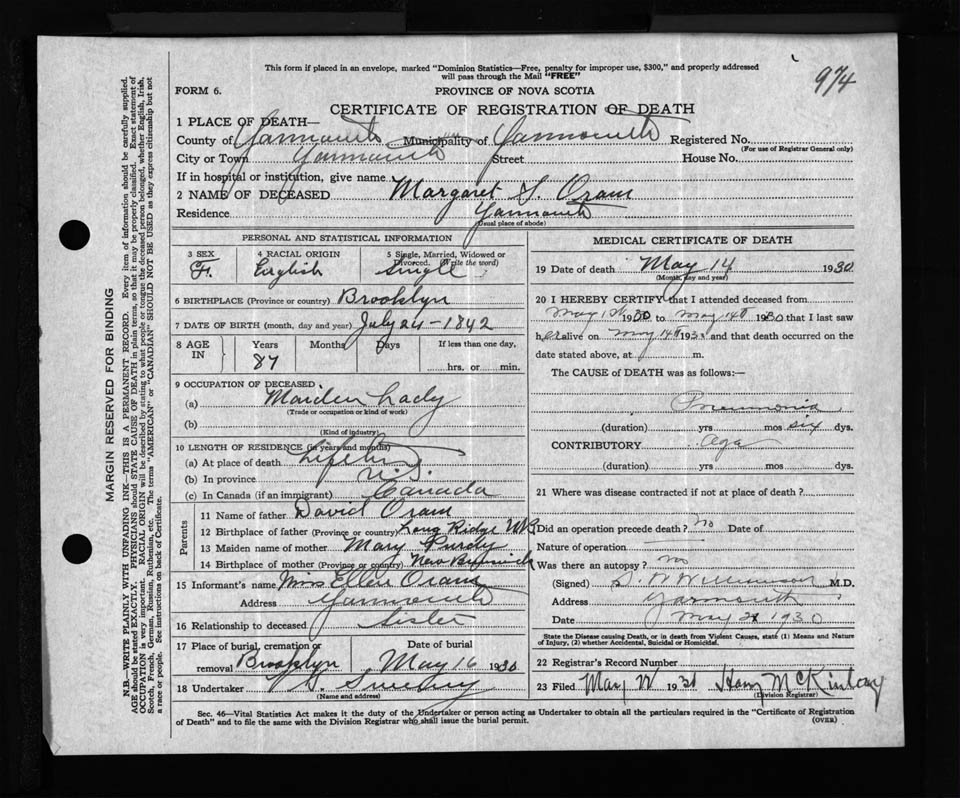 This form if placed in an envelope, marked "Dominion Statistics—Free, penalty for improper use, $300," and properly addressed
will pass through the Mail "FREE"
974
FORM 6. PROVINCE OF NOVA SCOTIA
CERTIFICATE OF REGISTRATION OF DEATH
1 PLACE OF DEATH—
County of Yarmouth Municipality of Yarmouth Registered No.
(For use of Registrar General only)
City or Town Yarmouth Street House No.
If in hospital or institution, give name
2 NAME OF DECEASED Margaret S. Oram
Residence Yarmouth
(Usual place of abode)
PERSONAL AND STATISTICAL INFORMATION
3 SEX 4 RACIAL ORIGIN 5 Single, Married, Widowed or
Divorced. (Write the word)
F. English Single
6 BIRTHPLACE (Province or country) Brooklyn
7 DATE OF BIRTH (month, day and year) July 24-1842
8 AGE IN Years Months Days If less than one day,
87 hrs. or min.
9 OCCUPATION OF DECEASED
(a) Maiden Lady
(Trade or occupation or kind of work)
(b)
(Kind of industry)
10 LENGTH OF RESIDENCE (in years and months)
(a) At place of death Lifetime
(b) In province N.S.
(c) In Canada (if an immigrant) Canada
Parents
11 Name of father David Oram
12 Birthplace of father (Province or country) Long Ridge NB
13 Maiden name of mother Mary Purdy
14 Birthplace of mother (Province or country) New Brunswick
15 Informant's name Mrs Ellen Oram
Address Yarmouth
16 Relationship to deceased Sister
17 Place of burial, cremation or Date of burial
removal Brooklyn May 16 1930
18 Undertaker Sweeny
(Name and address)
MEDICAL CERTIFICATE OF DEATH
19 Date of death May 14 1930
(Month, day and year)
20 I HEREBY CERTIFY that I attended deceased from
May 1930 to May 14th 1930 that I last saw
her alive on May 14th 193 and that death occurred on the
date stated above, at m.
The CAUSE of DEATH was as follows:—
Pneumonia
(duration) yrs mos six dys.
CONTRIBUTORY Age
(duration) yrs mos dys.
21 Where was disease contracted if not at place of death?
Did an operation precede death? No Date of
Nature of operation
Was there an autopsy? no
(Signed) Williamson M.D.
Address Yarmouth
Date May 1930
State the Disease causing Death, or in death from Violent Causes, state (1) Means and Nature
of Injury, (2) whether Accidental, Suicidal or Homicidal.
22 Registrar's Record Number
23 Filed 193 McKinlay
(Division Registrar)
Sec. 46—Vital Statistics Act makes it the duty of the Undertaker or person acting as Undertaker to obtain all the particulars required in the "Certificate of Registration
of Death" and to file the same with the Division Registrar who shall issue the burial permit. (OVER)
MARGIN RESERVED FOR BINDING
N.B.—WRITE PLAINLY WITH UNFADING INK—THIS IS A PERMANENT RECORD. Every item of information should be carefully supplied.
AGE should be stated EXACTLY. PHYSICIANS should STATE CAUSE OF DEATH in plain terms, so that it may be properly classified. Exact statement of
OCCUPATION is very important. RACIAL ORIGIN will be described by stating to what people or tongue the deceased person belonged, whether English, Irish,
Scotch, French, German, Russian, Ruthenian, etc. The terms "AMERICAN" or "CANADIAN" SHOULD NOT BE USED as they express citizenship but not
a race or people. See instructions on back of Certificate.